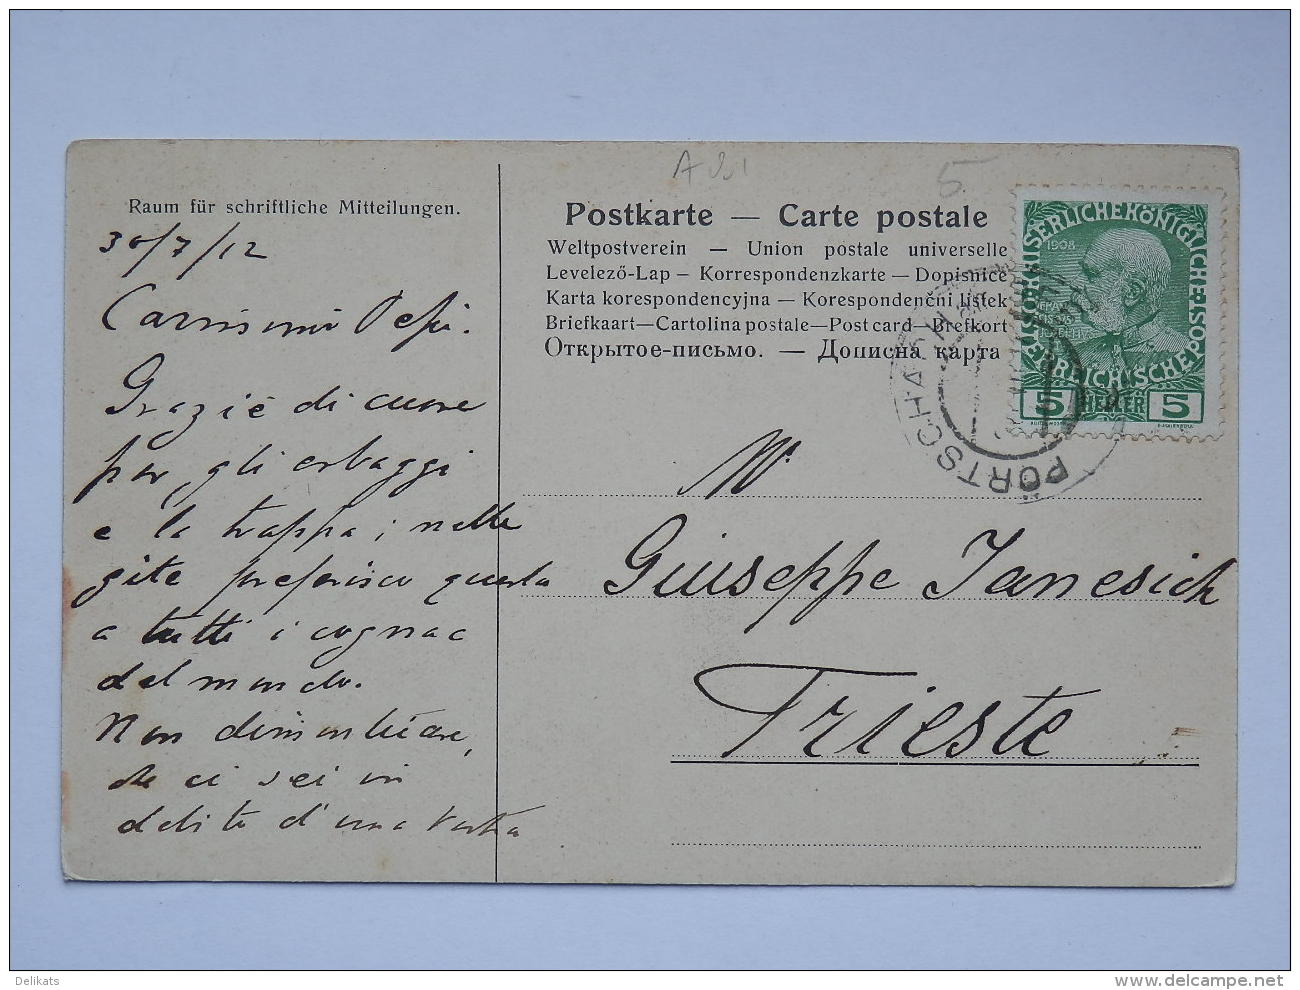 A 221
5
Raum für schriftliche Mitteilungen.
30/7/12
Carissimo Pepi.
Grazie di cuore
per gli erbaggi
e la trappa; nelle
gite preferisco questa
a tutti i cognac
del mondo.
Non dimenticare,
che ci sei in
debito d'una visita
Postkarte — Carte postale
Weltpostverein — Union postale universelle
Levelező-Lap – Korrespondenzkarte – Dopisnice
Karta korespondencyjna – Korespondenčni listek
Briefkaart—Cartolina postale—Post card—Brefkort
Открытое-письмо. — Дописна карта
1908
5 HELLER 5
PÖRTSCHACH
Giuseppe Janesich
Trieste
Delikats
delcampe.net